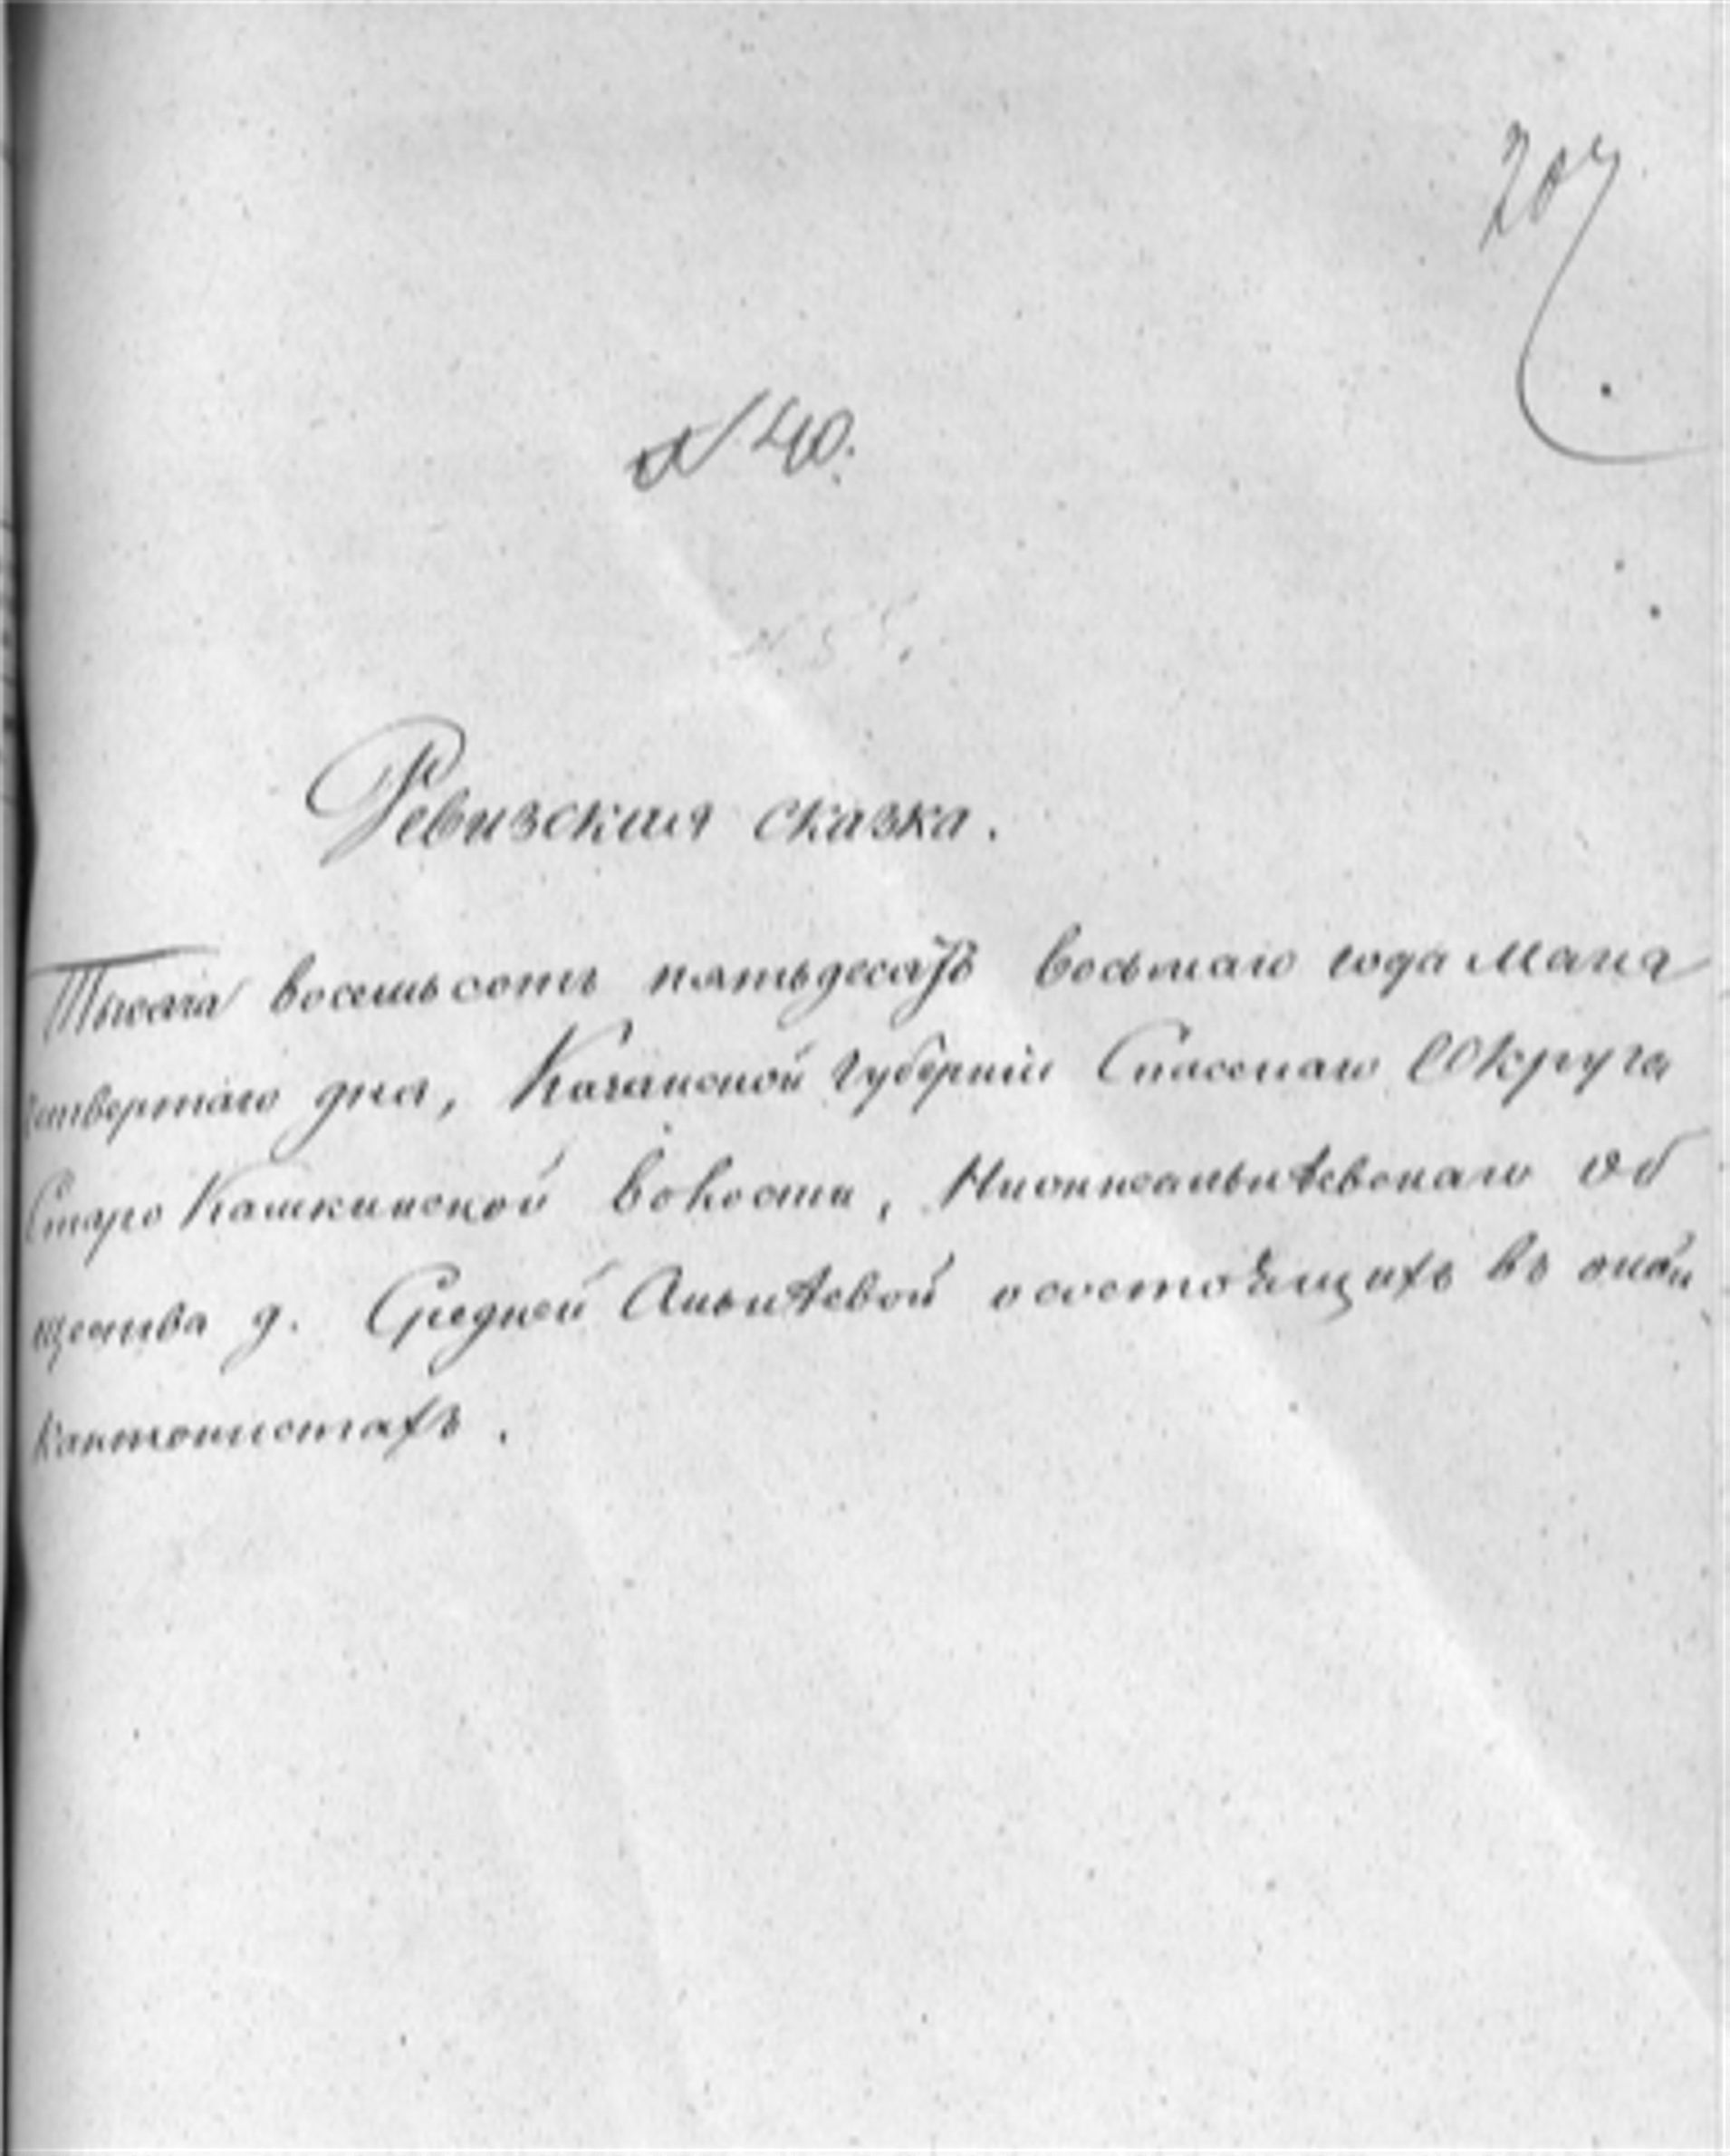 207
№ 40.
Ревизская сказка.
Тысяча восемьсотъ пятьдесятъ восьмаго года Маия
четвертаго дня, Казанской губерніи Спасскаго Округа
Старо Камкинской волости, Нижнеальпѣевскаго Об
щества д. Средней Альпѣевой о состоящихъ въ оной
кантонистахъ.